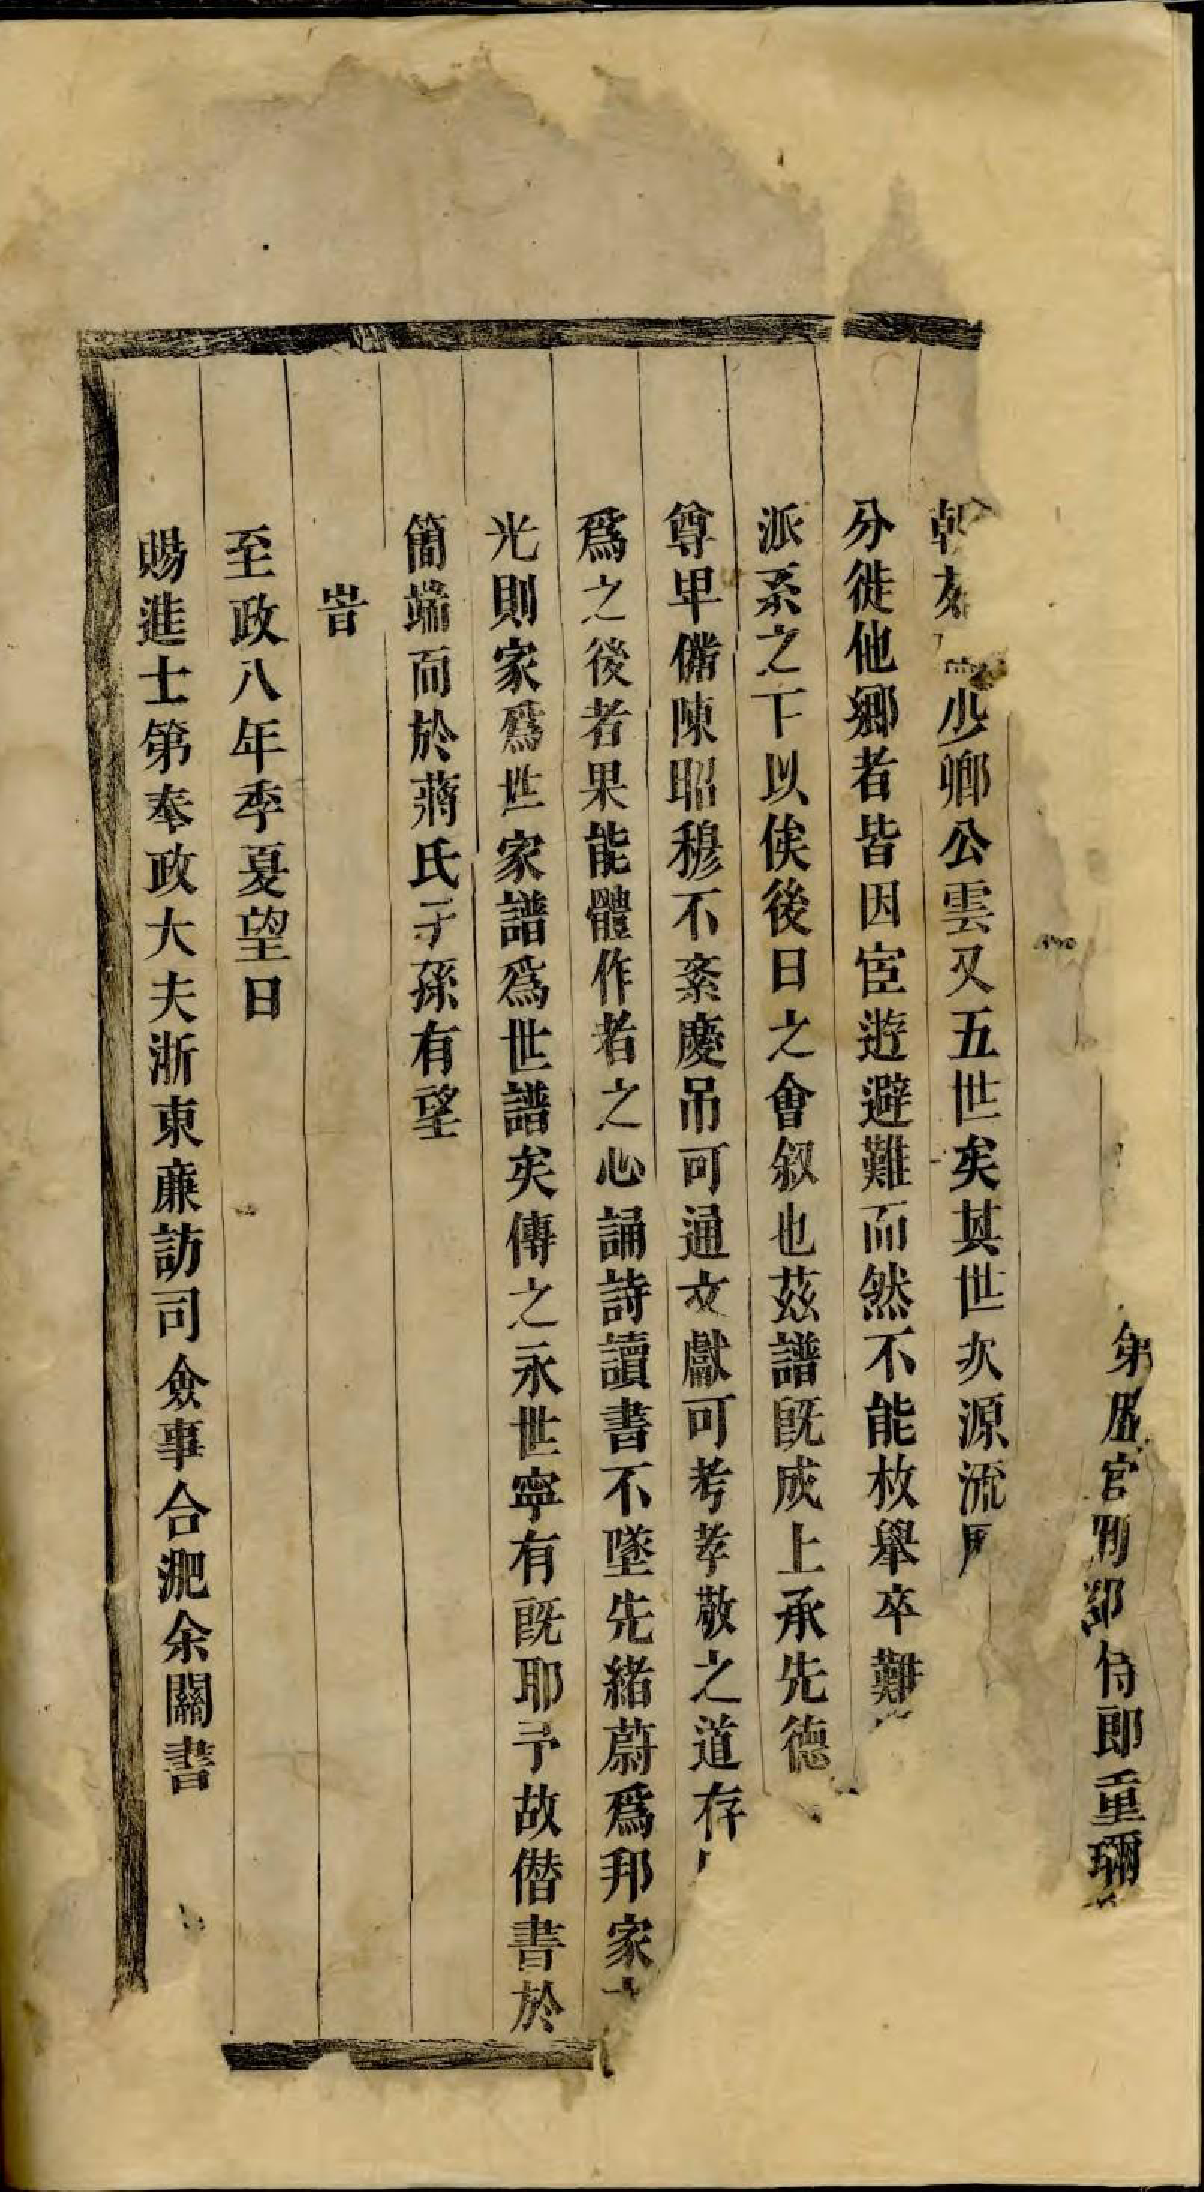 第 官刑部侍郎重珊
朝 少卿公雲又五世矣其世次源流
分徙他鄉者皆因宦遊避難而然不能枚舉卒難
派系之下以俟後日之會叙也茲譜旣成上承先德
尊卑僃陳昭穆不紊慶吊可通文獻可考孝敬之道存
爲之後者果能體作者之心誦詩讀書不墜先緒蔚爲邦家
光則家爲世家譜爲世譜矣傳之永世寧有旣耶予故僭書於
簡端而於蔣氏子孫有望
旹
至政八年季夏望日
賜進士第奉政大夫浙東廉訪司僉事合淝余闕書